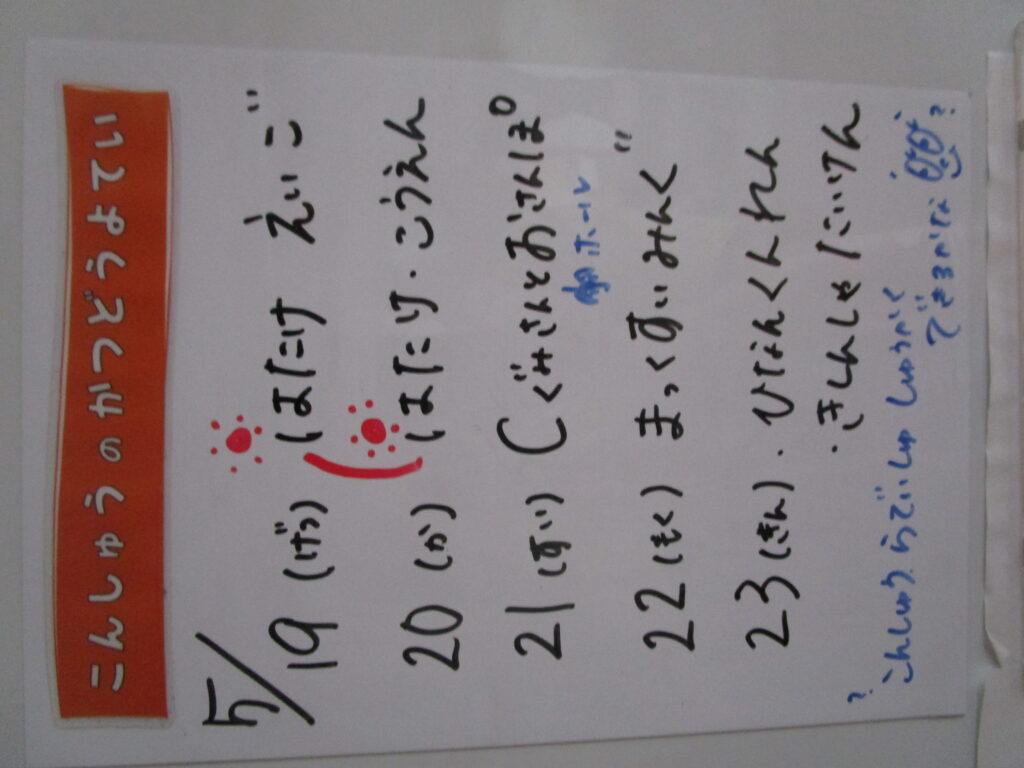 こんしゅうのかつどうよてい
5/
19 (げつ) はたけ えいご
20 (か) はたけ・こうえん
21 (すい) ぐみさんとおさんぽ
ホール
22 (もく) まっくすいみんぐ
23 (きん) ・ひなんくんれん
・きしんしゃたいけん
? こんしゅうらいしゅう しゅうかく
できるかな ?